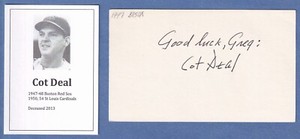 Cot Deal
1947-48 Boston Red Sox
1950, 54 St Louis Cardinals
Deceased 2013
Good luck, Greg:
Cot Deal